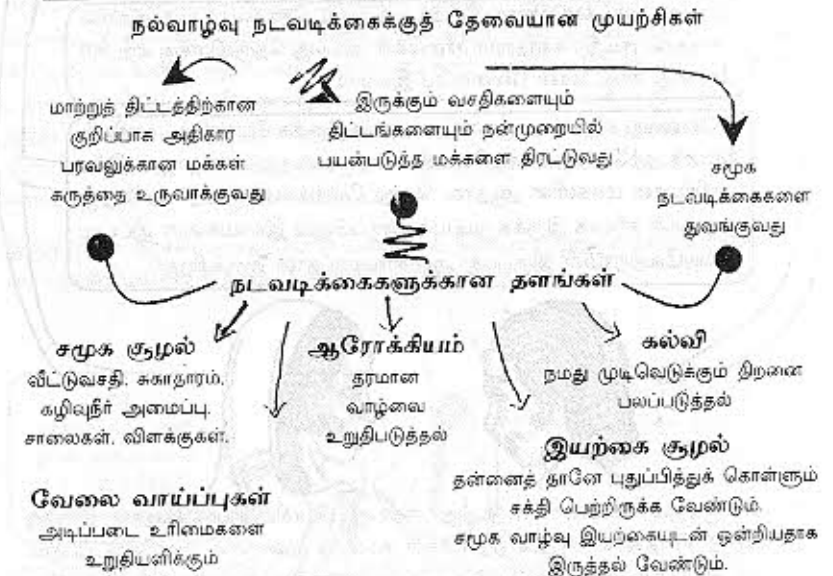 நல்வாழ்வு நடவடிக்கைக்குத் தேவையான முயற்சிகள்
மாற்றுத் திட்டத்திற்கான
குறிப்பாக அதிகார
பரவலுக்கான மக்கள்
கருத்தை உருவாக்குவது
இருக்கும் வசதிகளையும்
திட்டங்களையும் நன்முறையில்
பயன்படுத்த மக்களை திரட்டுவது
சமூக
நடவடிக்கைகளை
துவங்குவது
நடவடிக்கைகளுக்கான தளங்கள்
சமூக சூழல்
வீட்டுவசதி, சுகாதாரம்,
கழிவுநீர் அமைப்பு,
சாலைகள், விளக்குகள்,
ஆரோக்கியம்
தரமான
வாழ்வை
உறுதிபடுத்தல்
கல்வி
நமது முடிவெடுக்கும் திறனை
பலப்படுத்தல்
வேலை வாய்ப்புகள்
அடிப்படை உரிமைகளை
உறுதியளிக்கும்
இயற்கை சூழல்
தன்னைத் தானே புதுப்பித்துக் கொள்ளும்
சக்தி பெற்றிருக்க வேண்டும்.
சமூக வாழ்வு இயற்கையுடன் ஒன்றியதாக
இருத்தல் வேண்டும்.